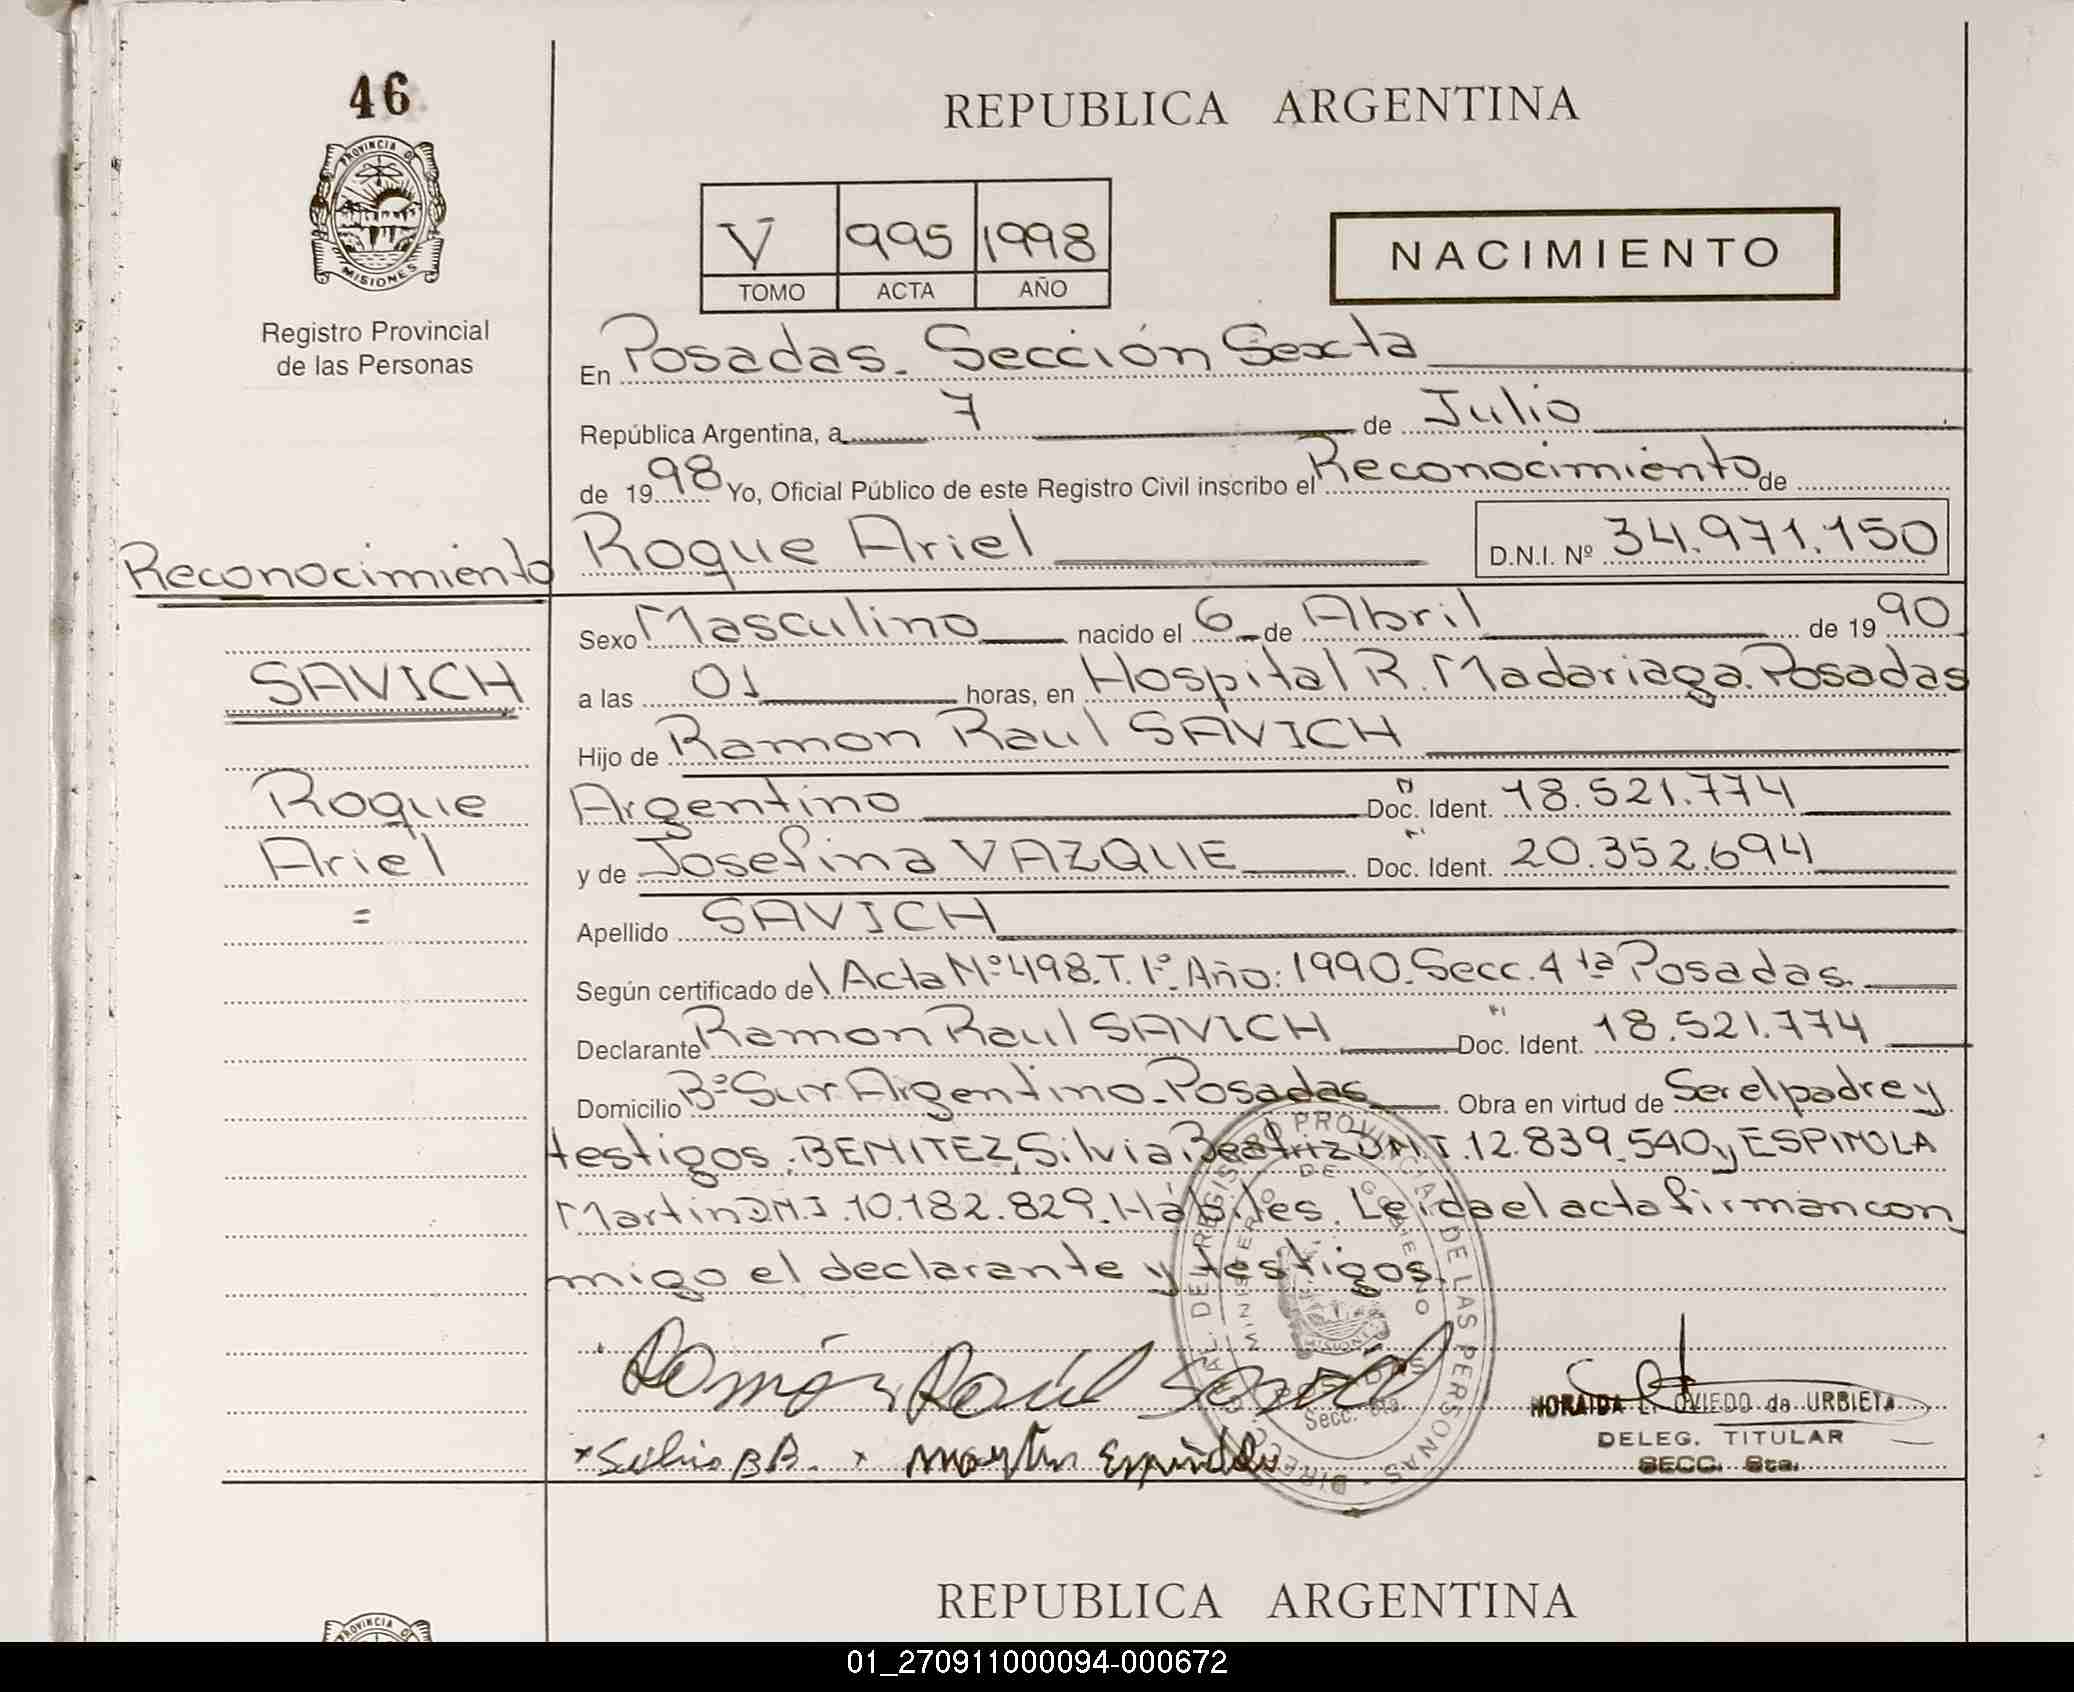 46
PROVINCIA DE
MISIONES
Registro Provincial
de las Personas
Reconocimiento
SAVICH
Roque
Ariel
=
REPUBLICA ARGENTINA
V 995 1998
TOMO ACTA AÑO
NACIMIENTO
En Posadas. Sección Sexta
República Argentina, a 7 de Julio
de 1998 Yo, Oficial Público de este Registro Civil inscribo el Reconocimiento de
Roque Ariel D.N.I. Nº 34.971.150
Sexo Masculino nacido el 6 de Abril de 1990
a las 01 horas, en Hospital R. Madariaga. Posadas
Hijo de Ramon Raul SAVICH
Argentino Doc. Ident. 18.521.774
y de Josefina VAZQUE Doc. Ident. 20.352.694
Apellido SAVICH
Según certificado del Acta Nº 498. T. 1º Año: 1990. Secc. 4ta Posadas.
Declarante Ramon Raul SAVICH Doc. Ident. 18.521.774
Domicilio Bº Sur Argentino. Posadas Obra en virtud de Ser el padre y
testigos. BENITEZ, Silvia Beatriz D.N.I. 12.839.540 y ESPINOLA
Martin D.N.I. 10.182.829. Hábiles. Leida el acta firman con
migo el declarante y testigos.
Román Raúl Savich
x Silvia B B. x Martin Espindola
DIRECC. GRAL. DEL REGISTRO PROVINCIAL DE LAS PERSONAS
MINISTERIO DE GOBIERNO
MISIONES
POSADAS
Secc. 6ta
HORAIDA L. OVIEDO de URBIETA
DELEG. TITULAR
SECC. 6ta.
REPUBLICA ARGENTINA
PROVINCIA DE
01_270911000094-000672